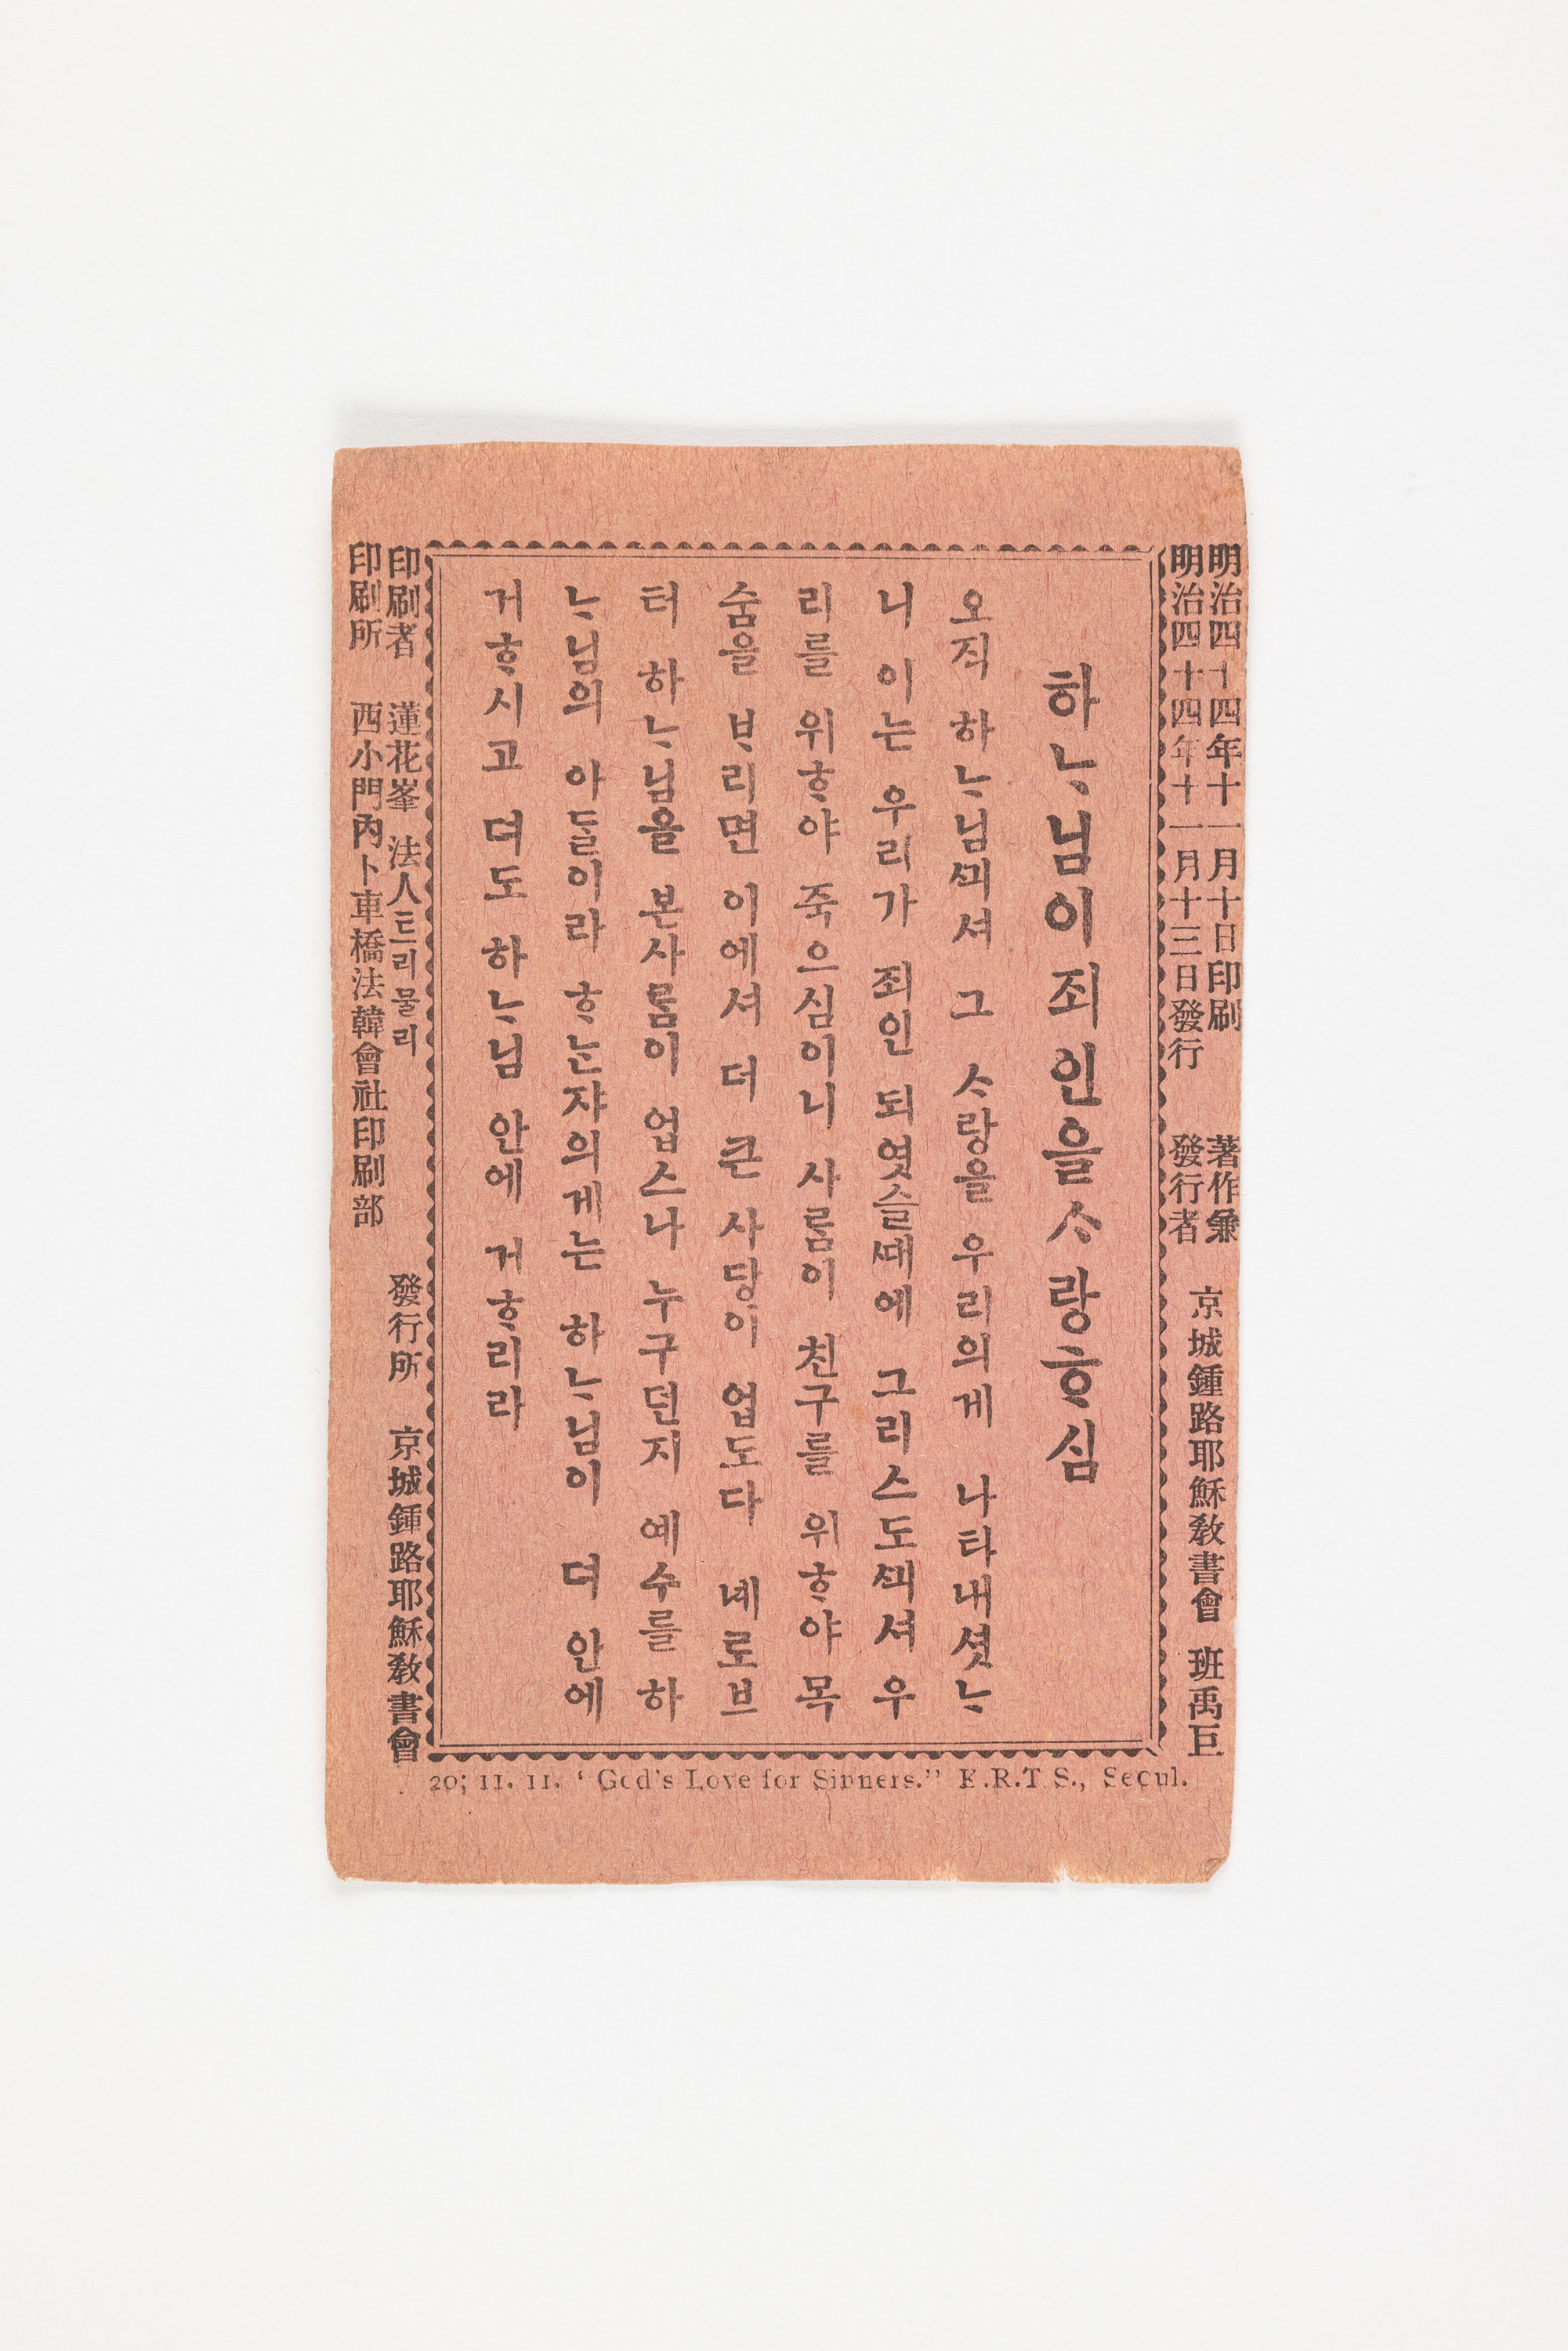 明治四十四年十一月十日印刷 著作兼
明治四十四年十一月十三日發行 發行者
京城鍾路耶穌敎書會 班禹巨
하ᄂᆞ님이죄인을ᄉᆞ랑ᄒᆞ심
오직 하ᄂᆞ님ᄭᅴ셔 그 ᄉᆞ랑을 우리의게 나타내셧ᄂᆞ
니 이는 우리가 죄인 되엿슬ᄯᅢ에 그리스도ᄭᅴ셔 우
리를 위ᄒᆞ야 죽으심이니 사ᄅᆞᆷ이 친구를 위ᄒᆞ야 목
숨을 ᄇᆞ리면 이에셔 더 큰 사당이 업도다 녜로브
터 하ᄂᆞ님을 본사ᄅᆞᆷ이 업스나 누구던지 예수를 하
ᄂᆞ님의 아ᄃᆞᆯ이라 ᄒᆞᄂᆞᆫ쟈의게는 하ᄂᆞ님이 뎌 안에
거ᄒᆞ시고 뎌도 하ᄂᆞ님 안에 거ᄒᆞ리라
印刷者 蓮花峯 法人드리물리 發行所 京城鍾路耶穌敎書會
印刷所 西小門內卜車橋法韓會社印刷部
20; 11. 11. ‘ God's Love for Sinners.” K.R.T S., Seoul.